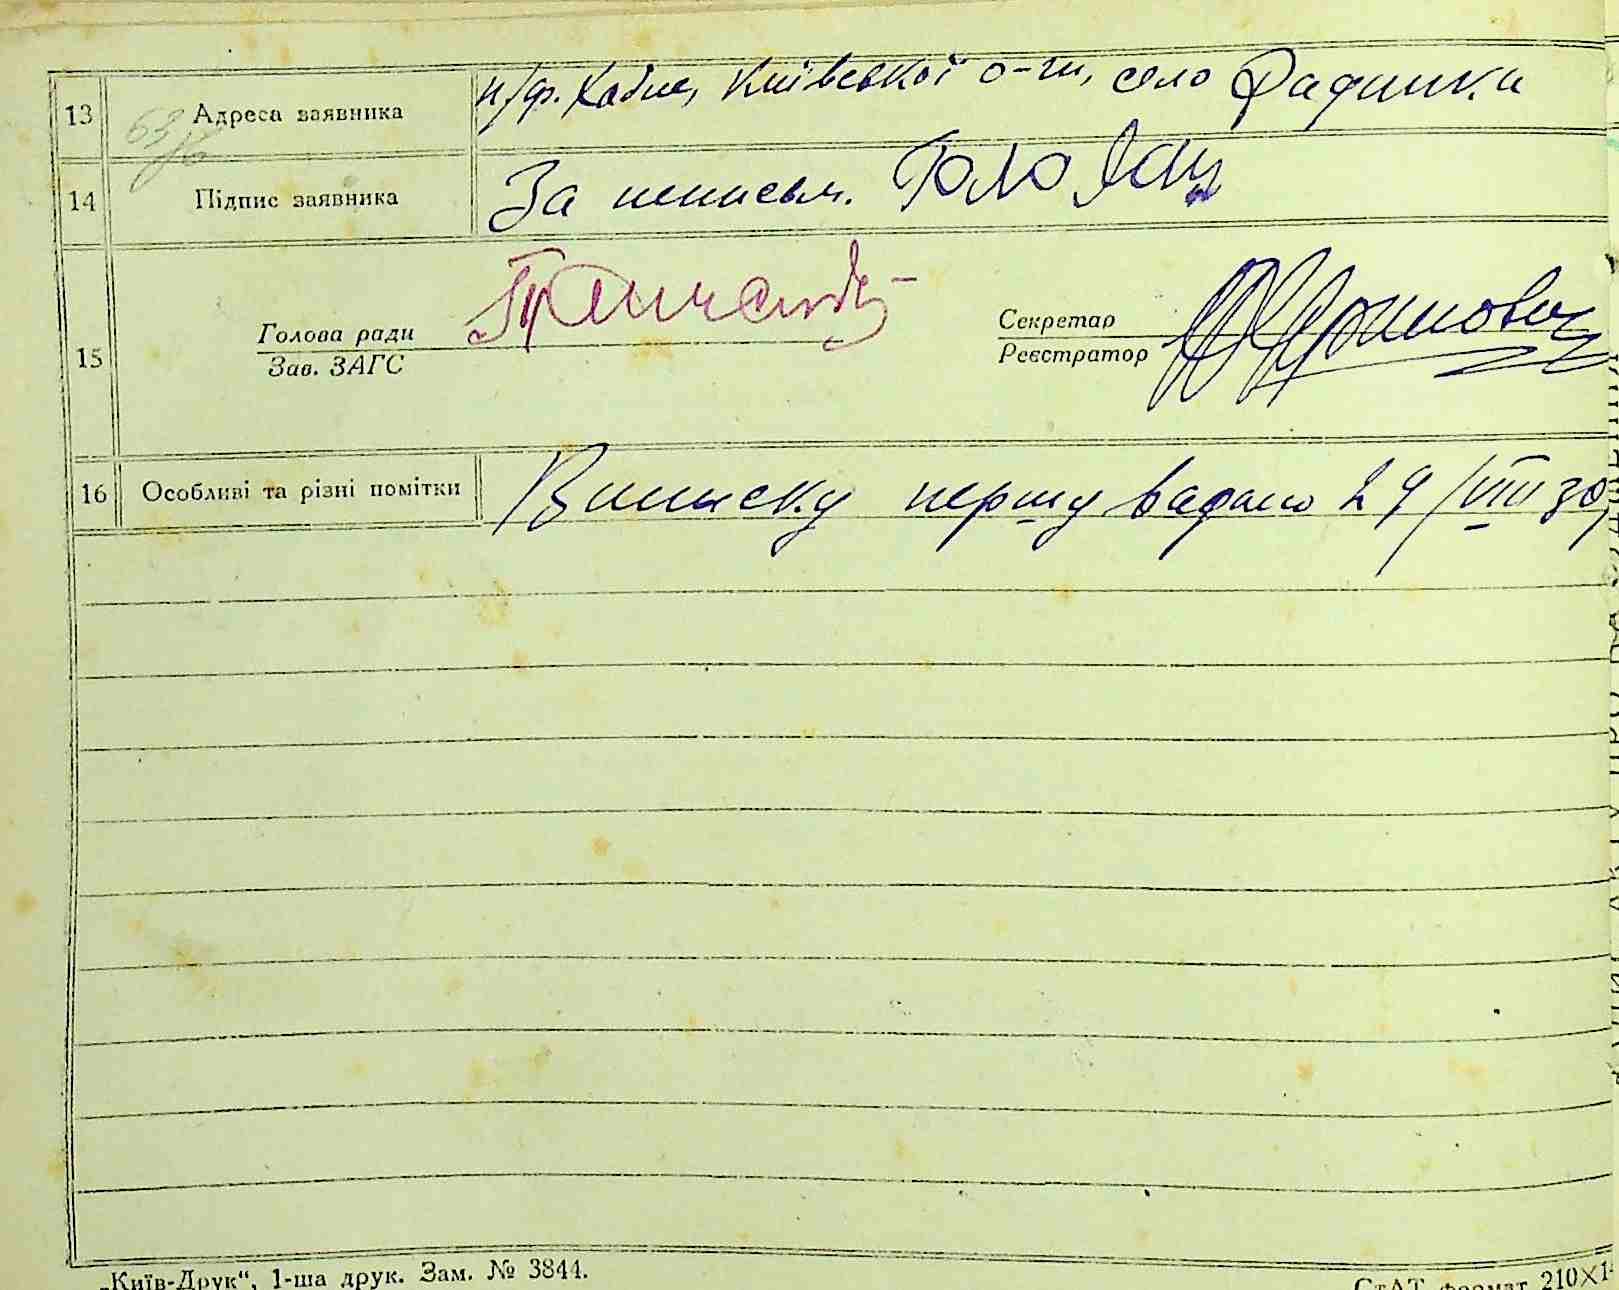 13 Адреса заявника п/ф. Хабне, Київської о-ти, село Радинка
14 Підпис заявника За неписьм.
15 Голова ради Секретар
Зав. ЗАГС Реєстратор
16 Особливі та різні помітки Виписку першу видано 29/VIII 30
„Київ-Друк“, 1-ша друк. Зам. № 3844. СтАТ формат 210×1